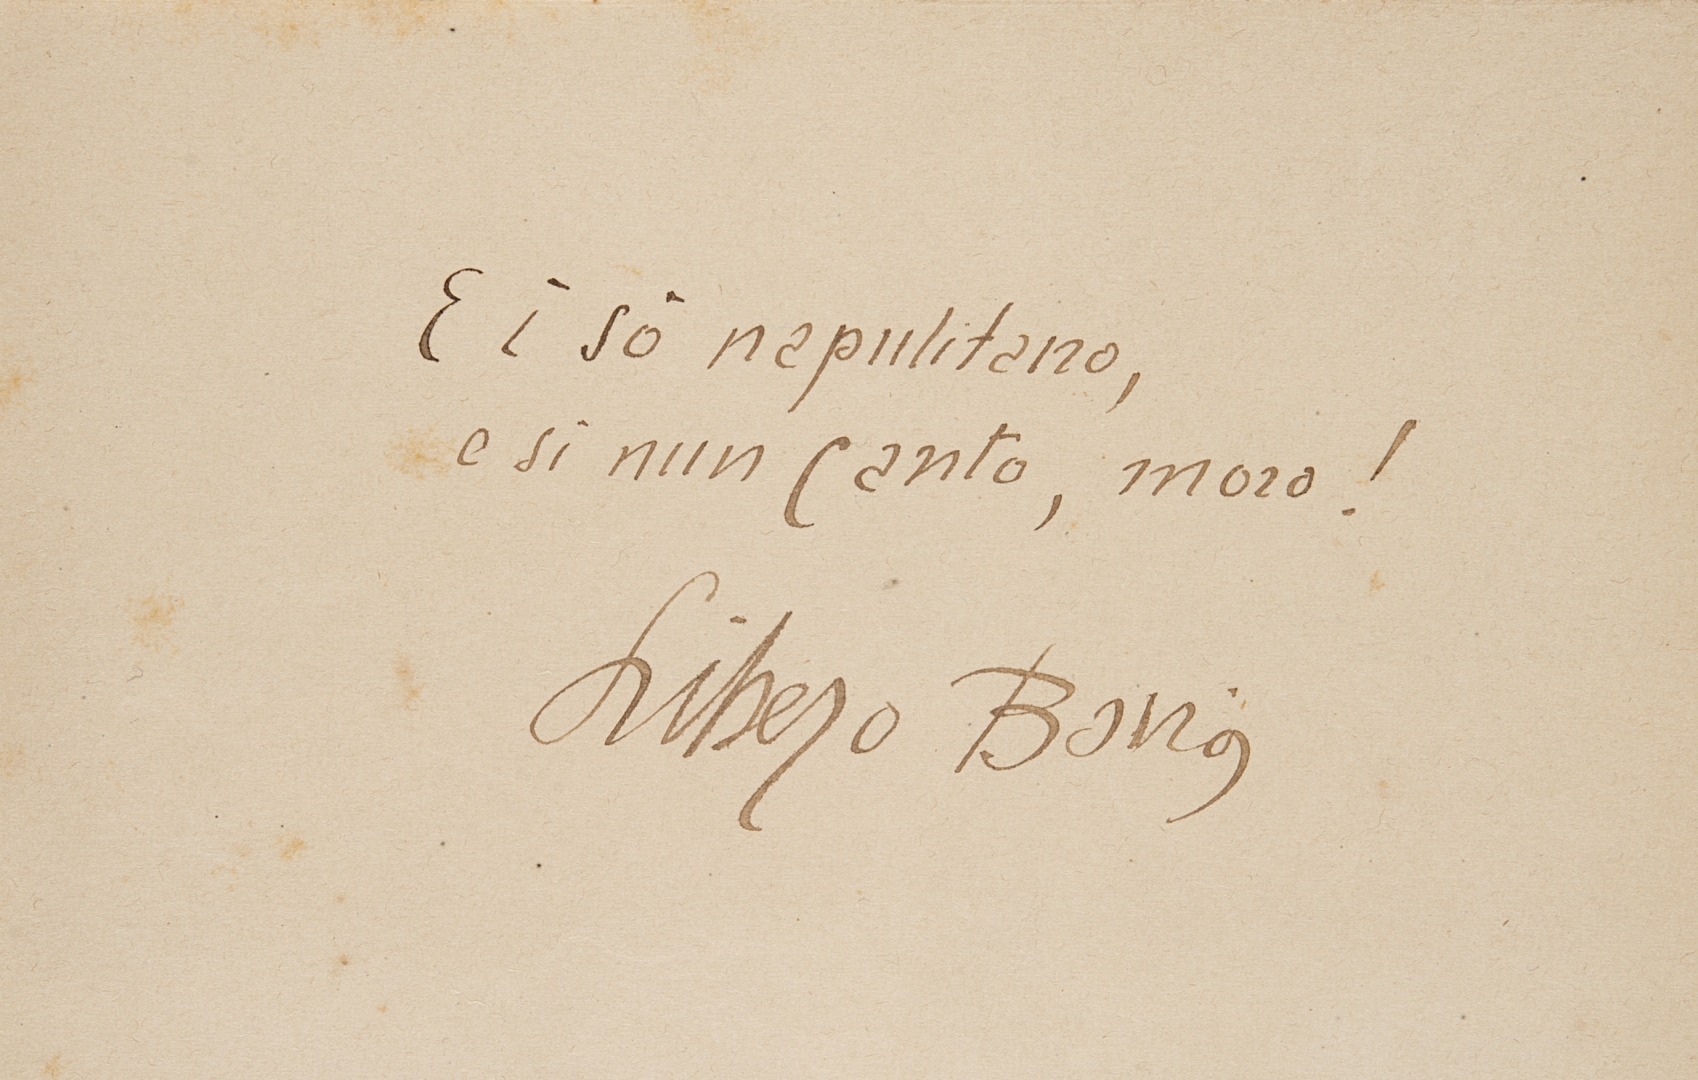 E ì sò napulitano,
e si nun canto, moro!
Libero Bovio